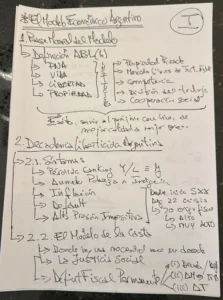 * El Modelo Económico Argentino
I
1. Base Moral del Modelo
↳ Definición ABL(h)
↳ VIDA
↳ LIBERTAD
↳ PROPIEDAD
↳ Propiedad Privada
↳ Mercados Libres de
↳ Competencia
↳ División del trabajo
↳ Cooperación social
Esto, servir al prójimo con bienes de
mejor calidad a mejor precio
2. Decadencia Argentina
↳ 2.1. Síntomas
↳ Pérdida Ranking Y/L
↳ Aumento Pobreza e Indigencia
↳ Inflación
↳ Default
↳ Alta Presión Impositiva
Desde inicio SXX
22 crisis
20 origen fiscal
↳ Alto
↳ MUY ALTO
↳ 2.2. El Modelo de la Casta
↳ Donde hay una necesidad nace un derecho
↳ La Justicia Social
↳ Déficit Fiscal Permanente
(i) Deuda
(ii)
(iii) ΔT